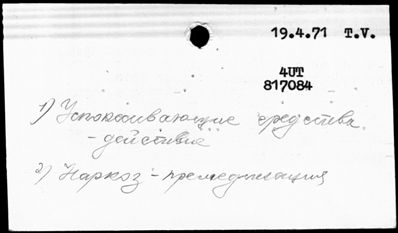 19.4.71 T.V.
4UT
817084
1) Успокаивающие средства.
- действие
2) Наркоз - премедикация